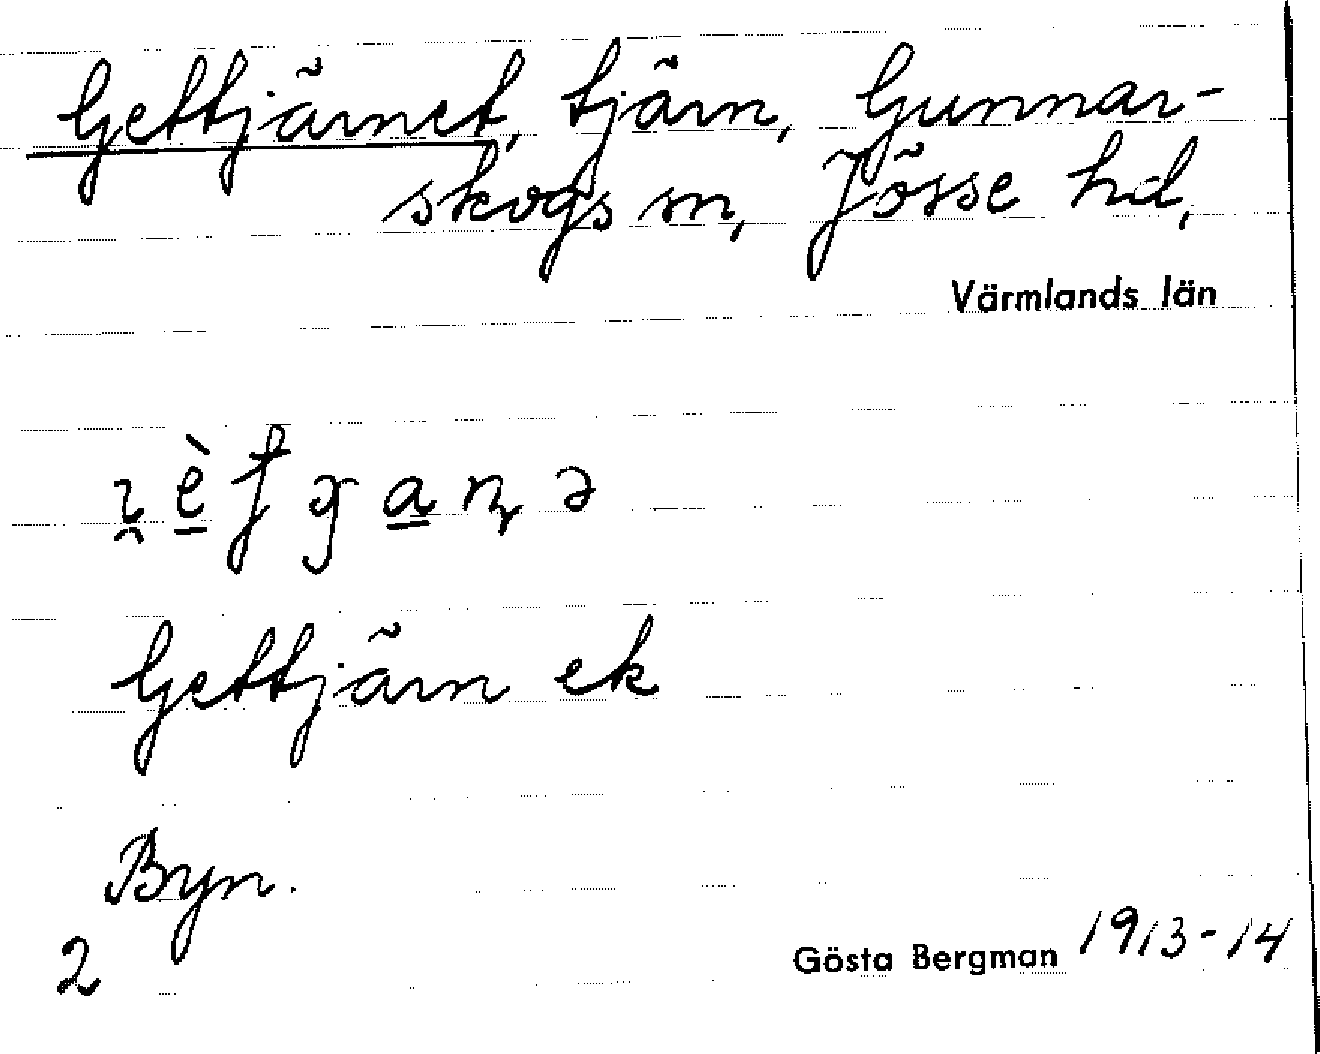 Gettjärnet, tjärn, Gunnar-
skogs sn, Jösse hd,
Värmlands län
Gettjärn ek
Byn.
2
Gösta Bergman 1913-14